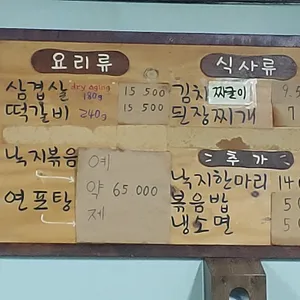 요리류
삼겹살 dry aging 180g 15 500
떡갈비 240g 15 500
낙지볶음 예
약 65 000
연포탕
제
식사류
김치 짜글이 9.5
된장찌개 7
추가
낙지한마리 140
볶음밥
냉소면